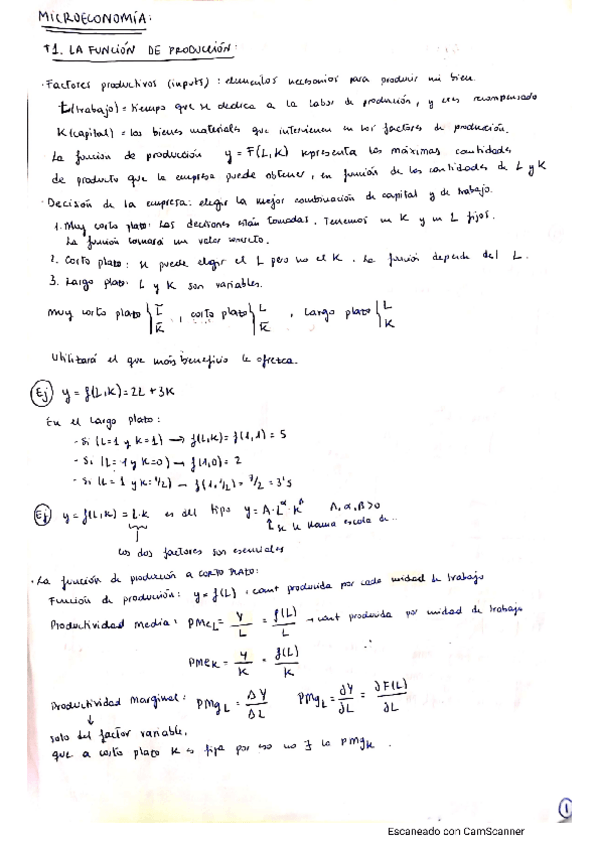 MICROECONOMÍA:
T1. LA FUNCIÓN DE PRODUCCIÓN:
· Factores productivos (inputs): elementos necesarios para producir un bien.
L (trabajo) = tiempo que se dedica a la labor de producción, y eres recompensado
K (capital) = los bienes materiales que intervienen en los factores de producción.
La función de producción y = F(L,K) representa las máximas cantidades
de producto que la empresa puede obtener, en función de las cantidades de L y K
· Decisión de la empresa: elegir la mejor combinación de capital y de trabajo.
1. Muy corto plazo: Las decisiones están tomadas. Tenemos un K y un L fijos.
La función tomará un valor concreto.
2. Corto plazo: se puede elegir el L pero no el K. La función depende del L.
3. Largo plazo: L y K son variables.
muy corto plazo { L̄ K̄ , corto plazo { L K̄ , largo plazo { L K
Utilizará el que más beneficio le ofrezca.
Ej y = f(L,K) = 2L + 3K
En el largo plazo:
- Si (L=1 y K=1) → f(L,K) = f(1,1) = 5
- Si (L=1 y K=0) → f(1,0) = 2
- Si (L=1 y K=1/2) → f(1,1/2) = 7/2 = 3'5
Ej y = f(L,K) = L·K es del tipo y = A·L^α·K^β A, α, β > 0
se le llama escala de...
los dos factores son esenciales
· La función de producción a CORTO PLAZO:
Función de producción: y = f(L) = cant producida por cada unidad de trabajo
Productividad media: PMe_L = Y/L = f(L)/L → cant producida por unidad de trabajo
PMe_K = Y/K = f(L)/K
Productividad marginal: PMg_L = ΔY/ΔL PMg_L = ∂Y/∂L = ∂F(L)/∂L
↓
solo del factor variable,
que a corto plazo K es fijo por eso no ∃ la PMg_K.
1
Escaneado con CamScanner